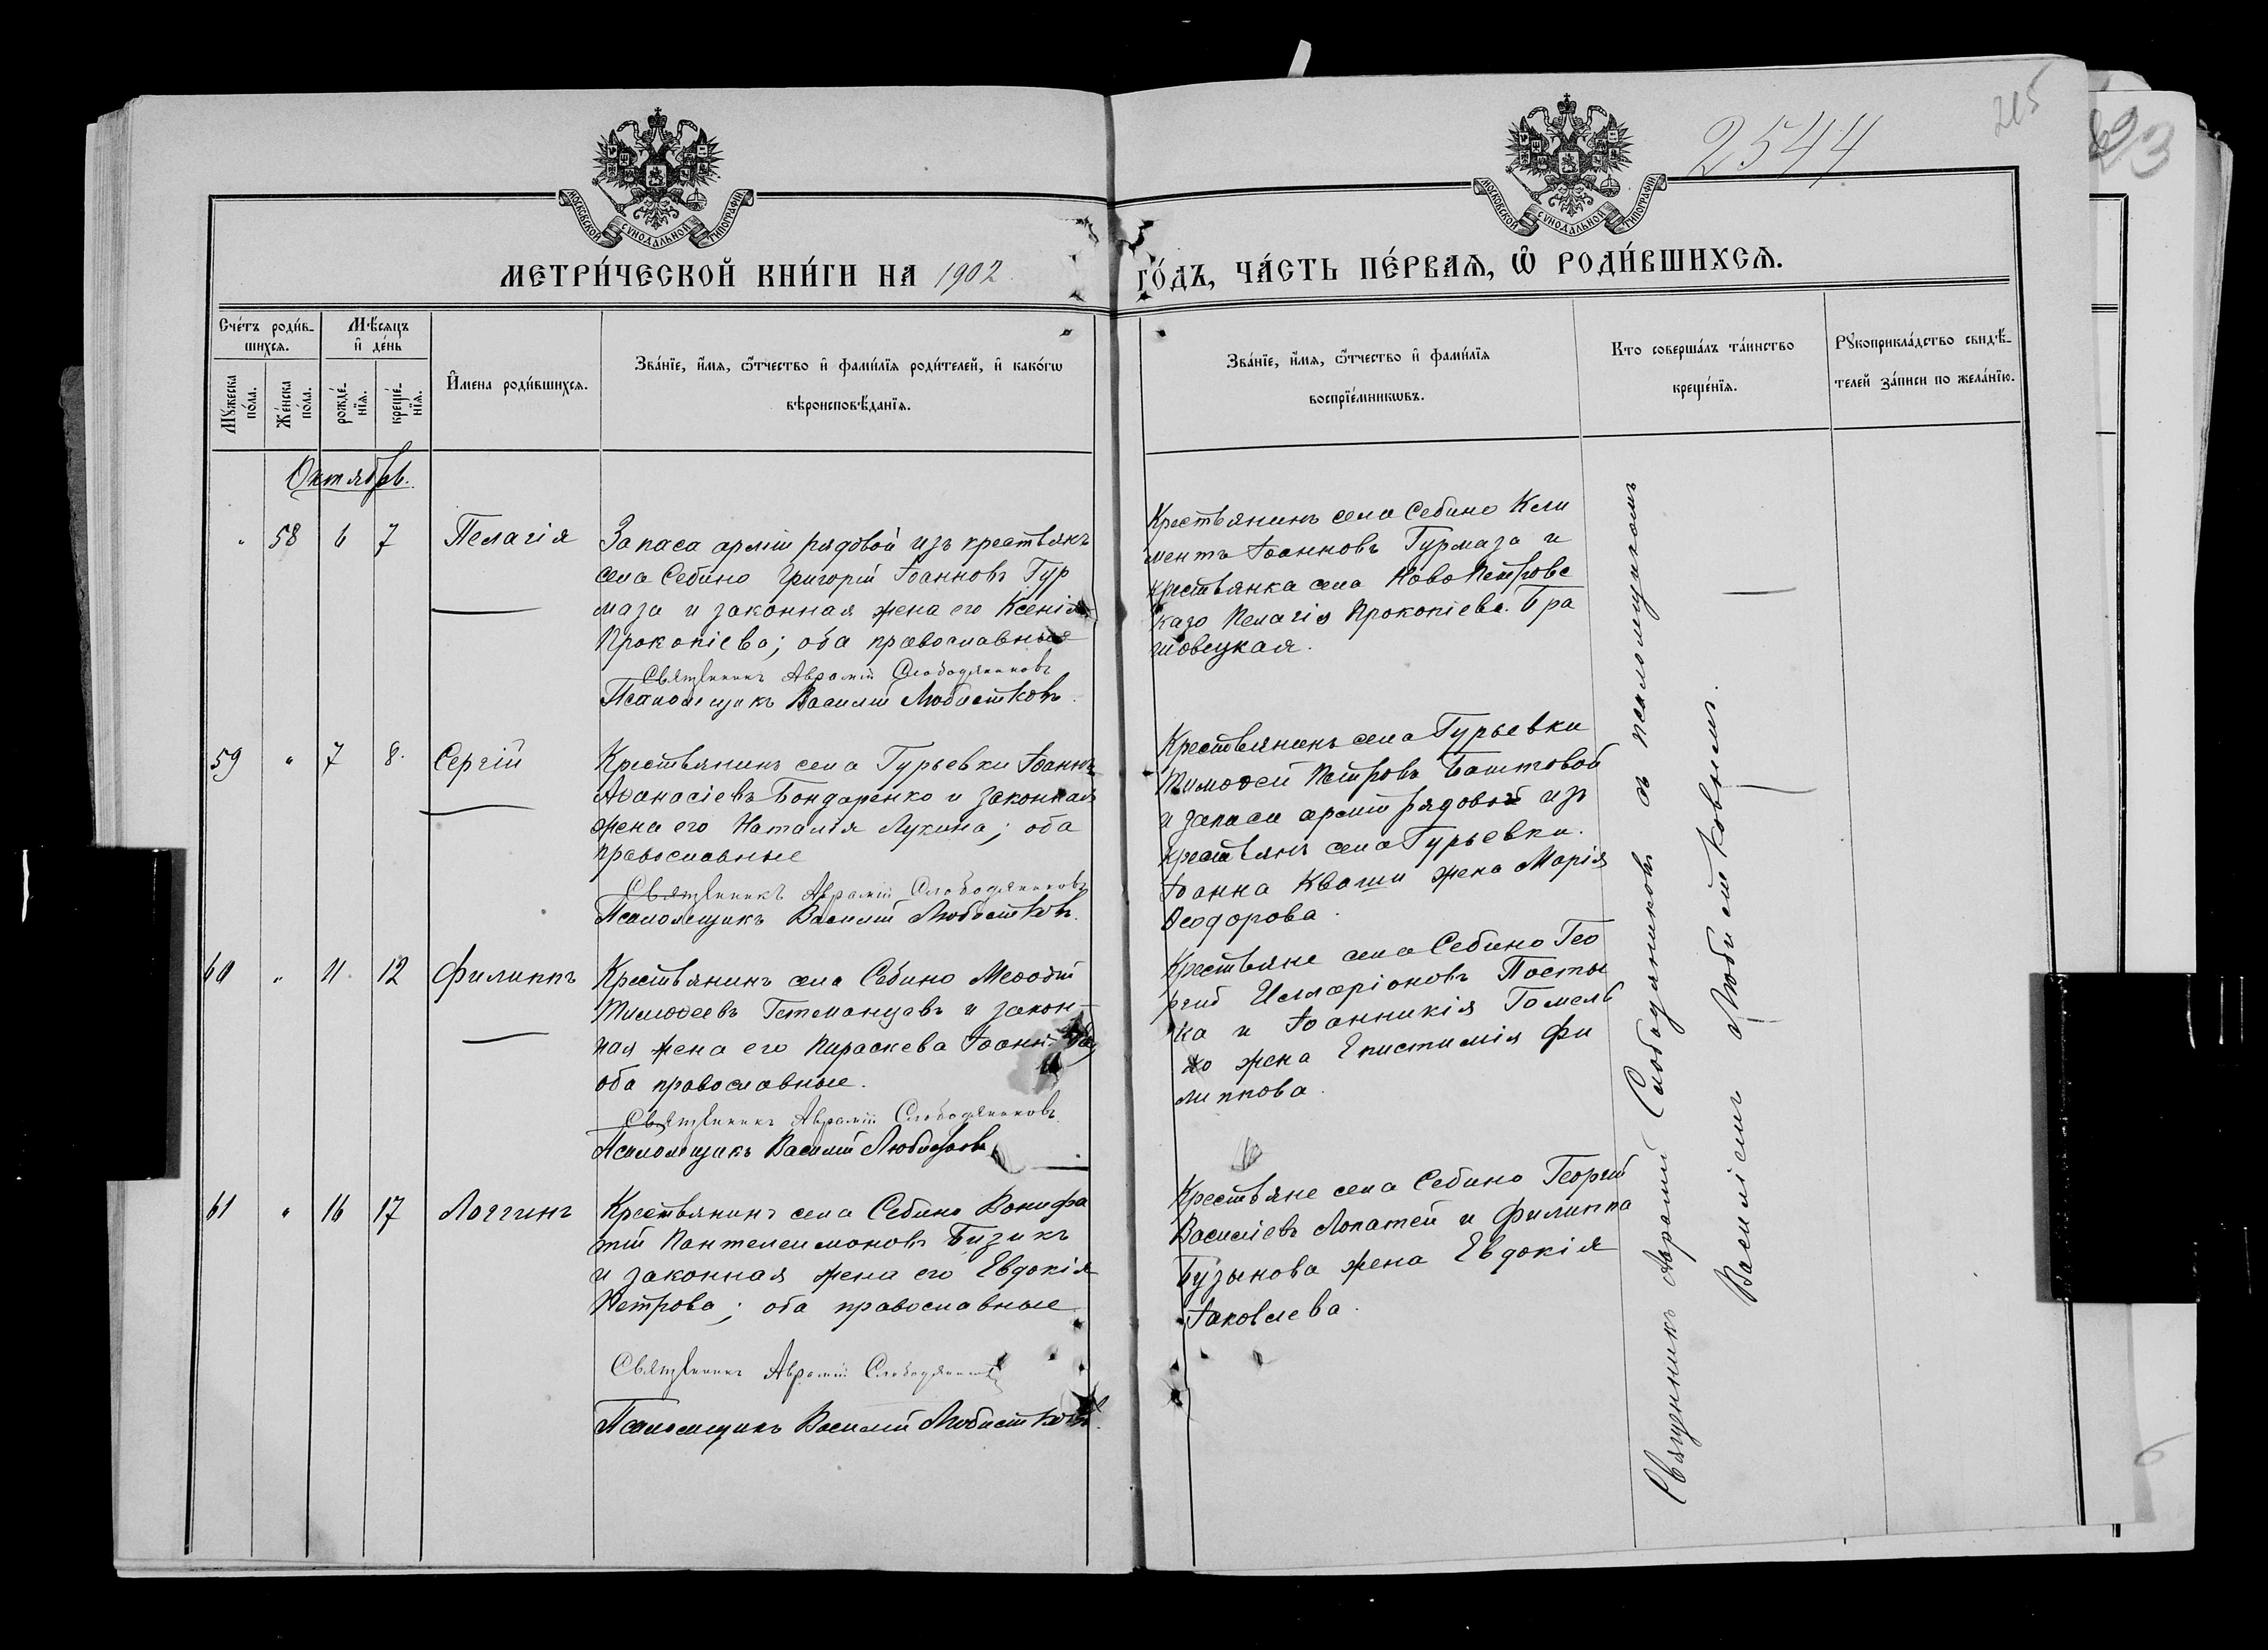 2544
215
23
МОСКОВСКОЙ СѴНОДАЛЬНОЙ ТИПОГРАФІИ
МОСКОВСКОЙ СѴНОДАЛЬНОЙ ТИПОГРАФІИ
МЕТРИ́ЧЕСКОЙ КНИ́ГИ НА 1902
ГО́ДЪ, ЧА́СТЬ ПЕ́РВАѦ, Ѽ РОДИ́ВШИХСѦ.
Сче́тъ роди́в-
шихсѧ.
Мꙋжеска
по́ла.
Же́нска
по́ла.
Мѣ́сяцъ
и҆ де́нь
рожде́-
нїѧ.
креще́-
нїѧ.
И҆мена роди́вшихсѧ.
Зва́нїе, и҆́мѧ, ѻ҆́тчество и҆ фами́лїѧ роди́телей, и҆ како́гѡ
вѣроисповѣ́данїѧ.
Зва́нїе, и҆́мѧ, ѻ҆́тчество и҆ фами́лїѧ
воспрїе́мникѡвъ.
Кто соверша́лъ та́инство
креще́нїѧ.
Рꙋкоприкла́дство свидѣ́-
телей за́писи по жела́нїю.
Октябрь.
" 58 6 7 Пелагія
Запаса арміи рядовой изъ крестьянъ
села Себино Григорій Іоанновъ Гур
маза и законная жена его Ксенія
Прокопіева; оба православные
Священникъ Аврамій Слободяниковъ
Псаломщикъ Василій Любистковъ.
Крестьянинъ села Себино Кли
ментъ Іоанновъ Гурмаза и
крестьянка села Ново Петровс
каго Пелагія Прокопіева Бра
шовецкая.
59 " 7 8. Сергій
Крестьянинъ села Гурьевки Іоаннъ
Аѳанасіевъ Бондаренко и законная
жена его Наталія Лукина; оба
православные
Священникъ Аврамій Слободяниковъ
Псаломщикъ Василій Любистковъ.
Крестьянинъ села Гурьевки
Тимоѳей Петровъ Баштовой
и запаса арміи рядовой изъ
крестьянъ села Гурьевки.
Іоанна Кваши жена Марія
Ѳеодорова.
60 " 11. 12 Филиппъ
Крестьянинъ села Себино Меѳодій
Тимоѳеевъ Гетманцевъ и закон-
ная жена его Параскева
оба православные.
Священникъ Аврамій Слободяниковъ
Псаломщикъ Василій Любистковъ
Крестьяне села Себино Гео
ргій Илларіоновъ Посты
ка и Іоанникія Гомель
ко жена Епистимія Фи
липпова.
61 " 16 17 Логгинъ
Крестьянинъ села Себино Вонифа
тій Пантелеимоновъ Бузикъ
и законная жена его Евдокія
Петрова; оба православные
Священникъ Аврамій Слободяниковъ
Псаломщикъ Василій Любистковъ.
Крестьяне села Себино Георгій
Василіевъ Лопатей и Филиппа
Бузынова жена Евдокія
Іаковлева.
Священникъ Аврамій Слободяниковъ съ псаломщикомъ
Василіемъ Любистковымъ.